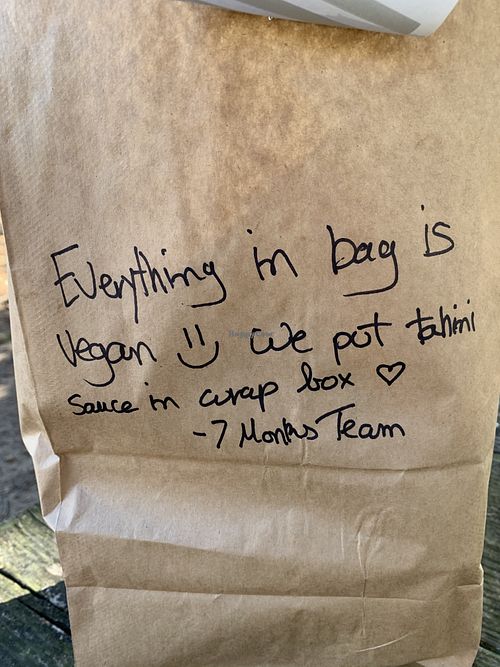 Everything in bag is
vegan =) we put tahini
sauce in wrap box ♡
-7 Monks Team